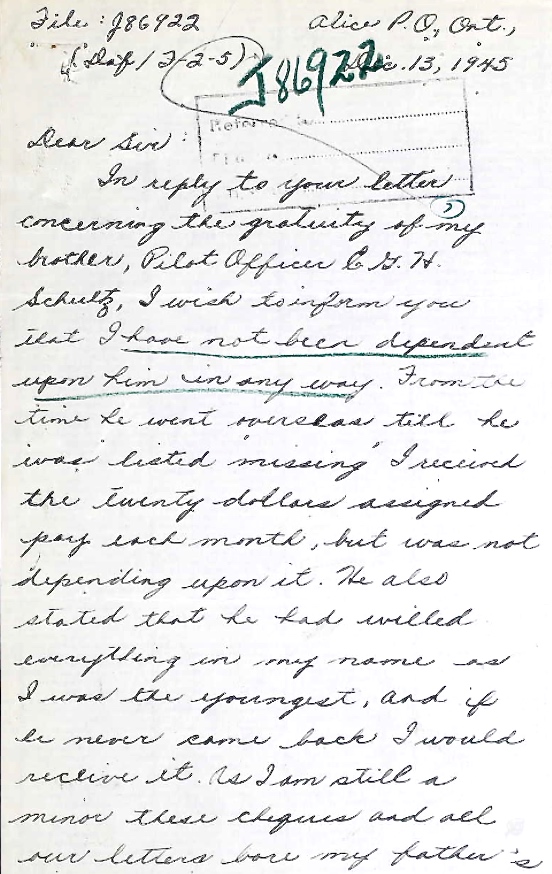 File: J86922 Alice P.O., Ont.,
(Daf/2-2-5) Dec. 13, 1945
J86922
Referred to
Dear Sir:
In reply to your letter
concerning the gratuity of my
brother, Pilot Officer E.G.H.
Schultz, I wish to inform you
that I have not been dependent
upon him in any way. From the
time he went overseas till he
was listed "missing" I received
the twenty dollars assigned
pay each month, but was not
depending upon it. He also
stated that he had willed
everything in my name as
I was the youngest, and if
he never came back I would
receive it. As I am still a
minor these cheques and all
our letters bore my father's